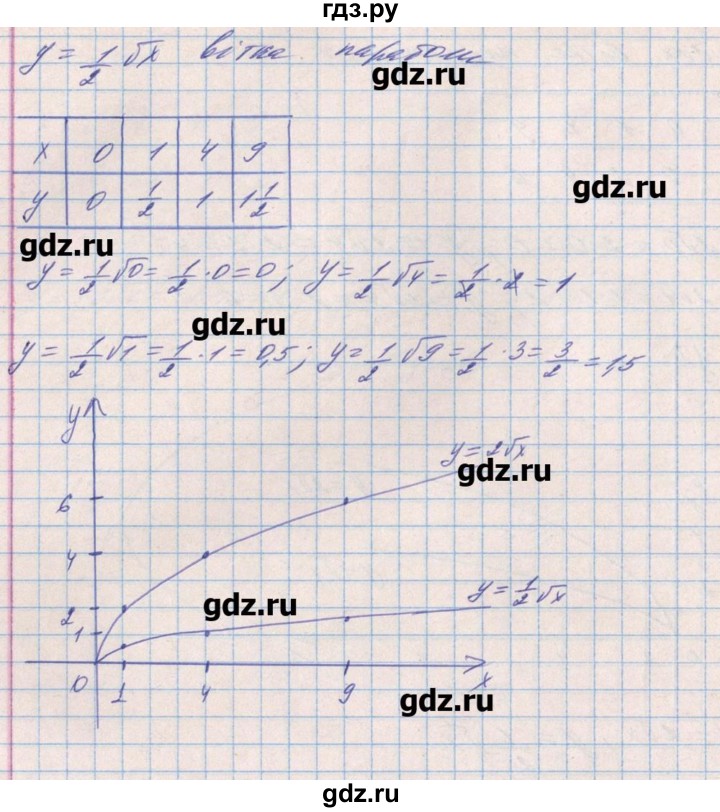 гдз.ру
y = 1/2 √x вітка параболи
gdz.ru
x 0 1 4 9
y 0 1/2 1 1 1/2
gdz.ru
gdz.ru
y = 1/2 √0 = 1/2 · 0 = 0; y = 1/2 √4 = 1/2 · 2 = 1
gdz.ru
y = 1/2 √1 = 1/2 · 1 = 0,5; y = 1/2 √9 = 1/2 · 3 = 3/2 = 1,5
y
y = 2√x
gdz.ru
6
4
y = 1/2 √x
2
gdz.ru
1
0 1 4 9 x
gdz.ru
gdz.ru